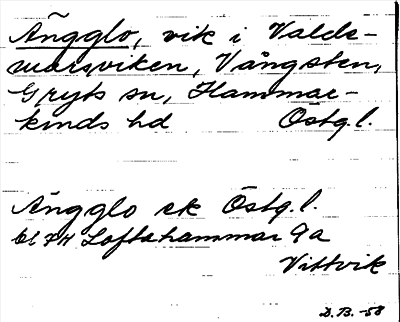 Ängglo, vik i Valds-
marsviken, Vångsten,
Gryts sn, Hammar-
kinds hd Östg.l.
Ängglo ek Östg.l.
Loftahammar 9a
Vittvik
D.B.-58